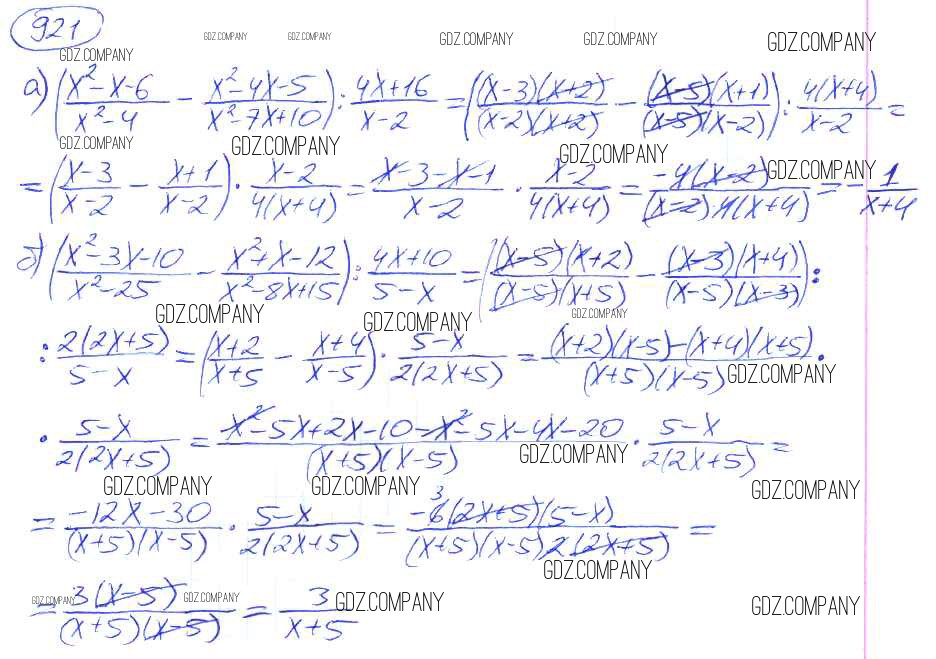 921
GDZ.COMPANY GDZ.COMPANY GDZ.COMPANY GDZ.COMPANY GDZ.COMPANY
GDZ.COMPANY
а) ((x²-x-6)/(x²-4) - (x²-4x-5)/(x²-7x+10)) : (4x+16)/(x-2) = ((x-3)(x+2)/(x-2)(x+2) - (x-5)(x+1)/(x-5)(x-2)) : 4(x+4)/(x-2) =
GDZ.COMPANY GDZ.COMPANY GDZ.COMPANY GDZ.COMPANY
= ((x-3)/(x-2) - (x+1)/(x-2)) · (x-2)/4(x+4) = (x-3-x-1)/(x-2) · (x-2)/4(x+4) = -4(x-2)/(x-2)4(x+4) = -1/(x+4)
б) ((x²-3x-10)/(x²-25) - (x²+x-12)/(x²-8x+15)) : (4x+10)/(5-x) = ((x-5)(x+2)/(x-5)(x+5) - (x-3)(x+4)/(x-5)(x-3)) :
GDZ.COMPANY GDZ.COMPANY GDZ.COMPANY
: 2(2x+5)/(5-x) = ((x+2)/(x+5) - (x+4)/(x-5)) · (5-x)/2(2x+5) = ((x+2)(x-5)-(x+4)(x+5))/(x+5)(x-5) ·
GDZ.COMPANY
· (5-x)/2(2x+5) = (x²-5x+2x-10-x²-5x-4x-20)/(x+5)(x-5) · (5-x)/2(2x+5) =
GDZ.COMPANY
GDZ.COMPANY GDZ.COMPANY GDZ.COMPANY
= (-12x-30)/(x+5)(x-5) · (5-x)/2(2x+5) = -6 3 (2x+5)(5-x)/(x+5)(x-5)2(2x+5) =
GDZ.COMPANY
= 3(x-5)/(x+5)(x-5) = 3/(x+5)
GDZ.COMPANY GDZ.COMPANY GDZ.COMPANY GDZ.COMPANY